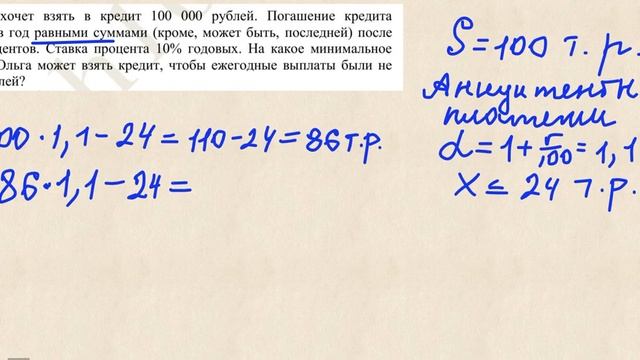 хочет взять в кредит 100 000 рублей. Погашение кредита
в год равными суммами (кроме, может быть, последней) после
центов. Ставка процента 10% годовых. На какое минимальное
Ольга может взять кредит, чтобы ежегодные выплаты были не
лей?
S = 100 т. р.
Аннуитентн
платежи
α = 1 + r/100 = 1,1
x ≤ 24 т.р.
00 · 1,1 − 24 = 110 − 24 = 86 т.р.
86 · 1,1 − 24 =